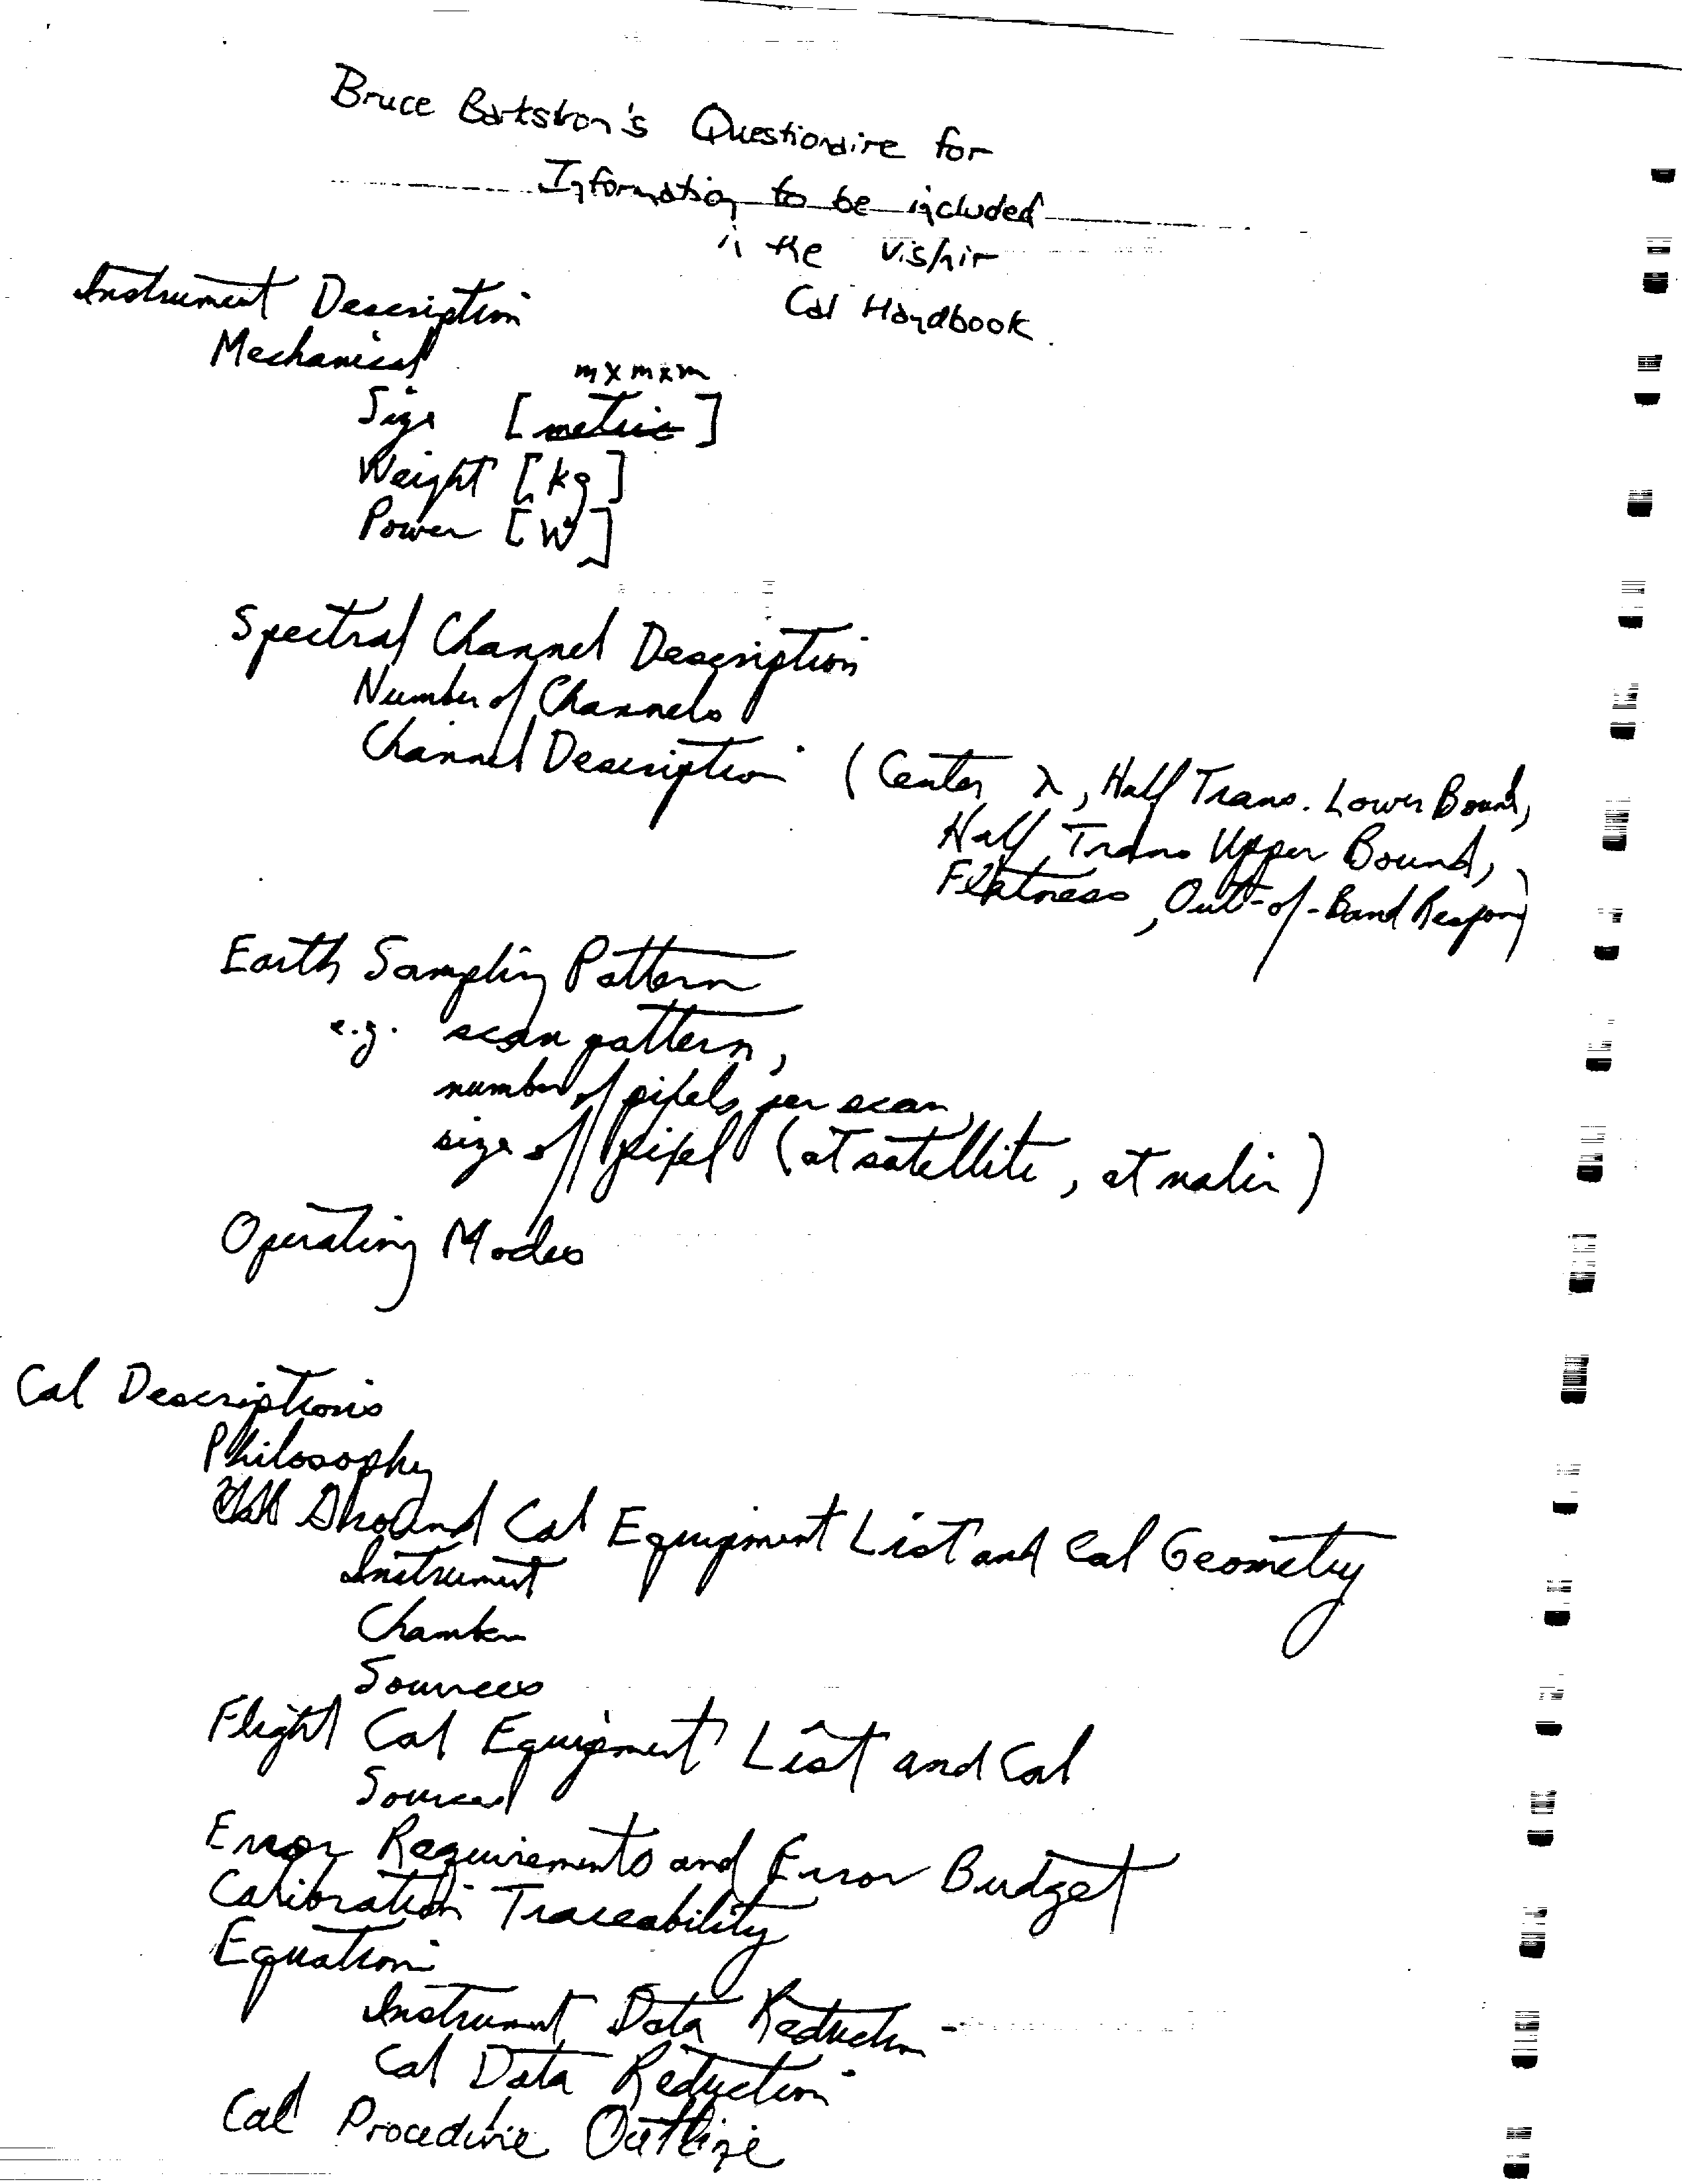 Bruce Barkstrom's Questionaire for
Information to be included
in the vis/nir
Cal Handbook.
Instrument Description
Mechanical
m x m x m
Size [metric]
Weight [kg]
Power [W]
Spectral Channel Description
Number of Channels
Channel Description (Center λ, Half Trans. Lower Bound,
Half Trans Upper Bound,
Flatness, Out-of-Band Respons)
Earth Sampling Pattern
e.g. scan pattern,
number of pixels per scan,
size of pixel (at satellite, at nadir)
Operating Modes
Cal Descriptions
Philosophy
Ground Cal Equipment List and Cal Geometry
Instrument
Chamber
Sources
Flight Cal Equipment List and Cal
Sources
Error Requirements and Error Budget
Calibration Traceability
Equation
Instrument Data Reduction
Cal Data Reduction
Cal Procedure Outline